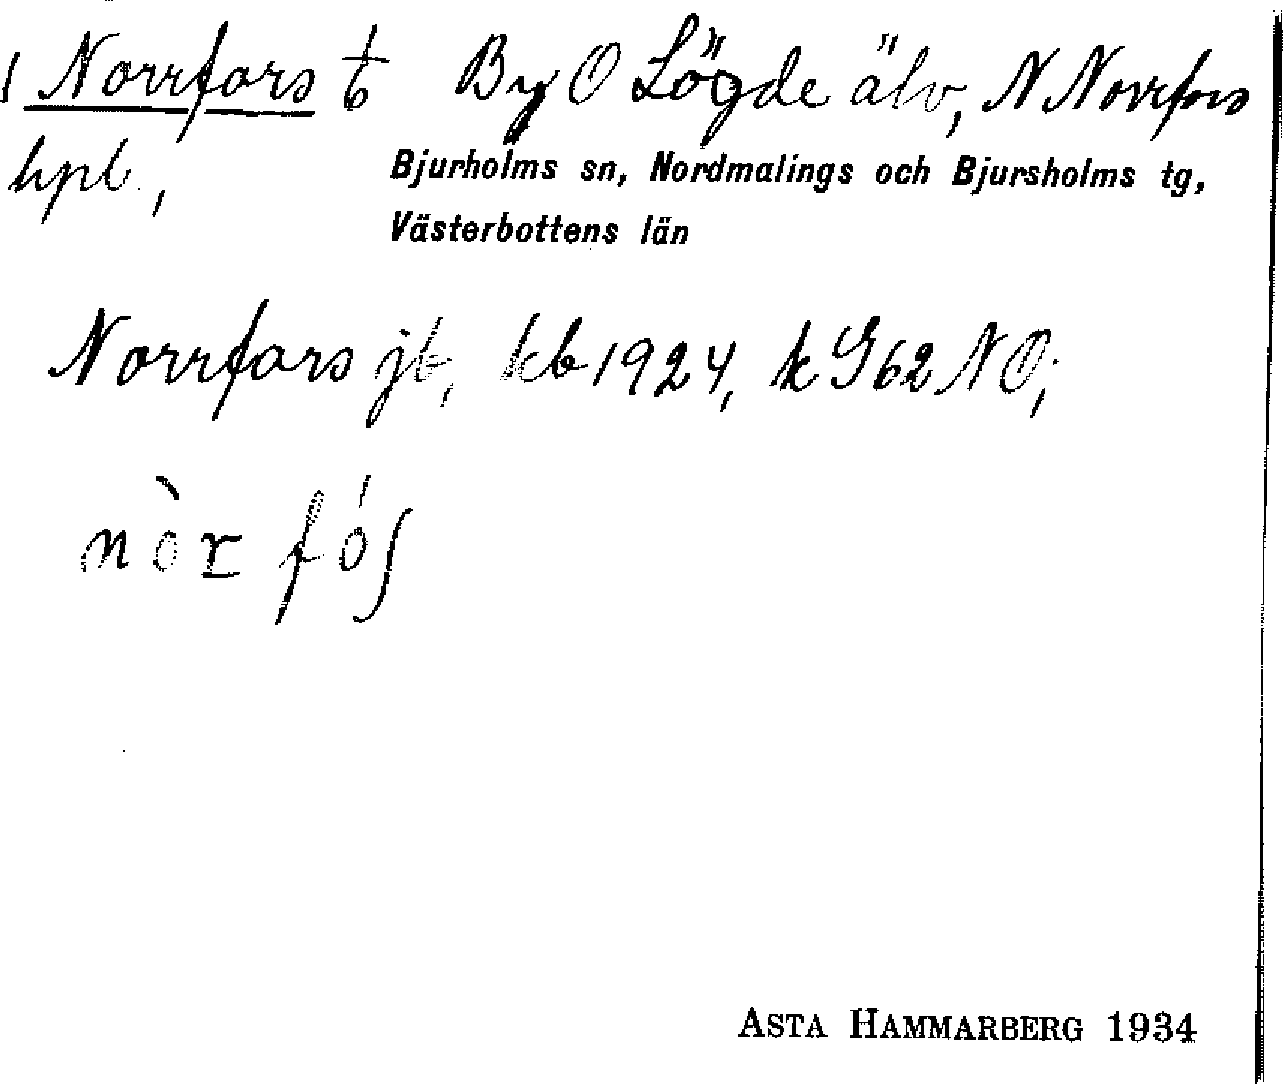 1 Norrfors By O Lögde älv, N Norrfors
hpl.,
Bjurholms sn, Nordmalings och Bjursholms tg,
Västerbottens län
Norrfors jb, kb 1924, k G62 NO;
nòr fóʃ
ASTA HAMMARBERG 1934